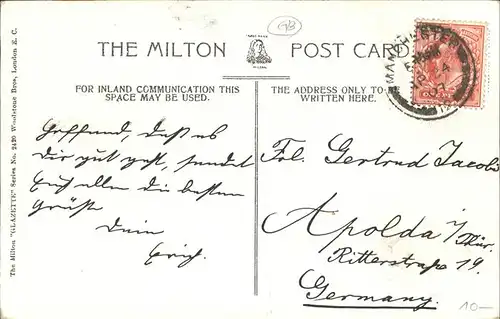 GB
THE MILTON POST CARD
MANCHESTER
FOR INLAND COMMUNICATION THIS
SPACE MAY BE USED.
THE ADDRESS ONLY TO BE
WRITTEN HERE.
Hoffend, dass es
dir gut geht, sendet
Euch allen die besten
Grüße
Dein
Erich.
Frl. Gertrud Jacobi
Apolda i/Thür.
Ritterstraße 19.
Germany.
10—
The Milton "GLAZETTE" Series No. Woodstone Bros., London E.C.